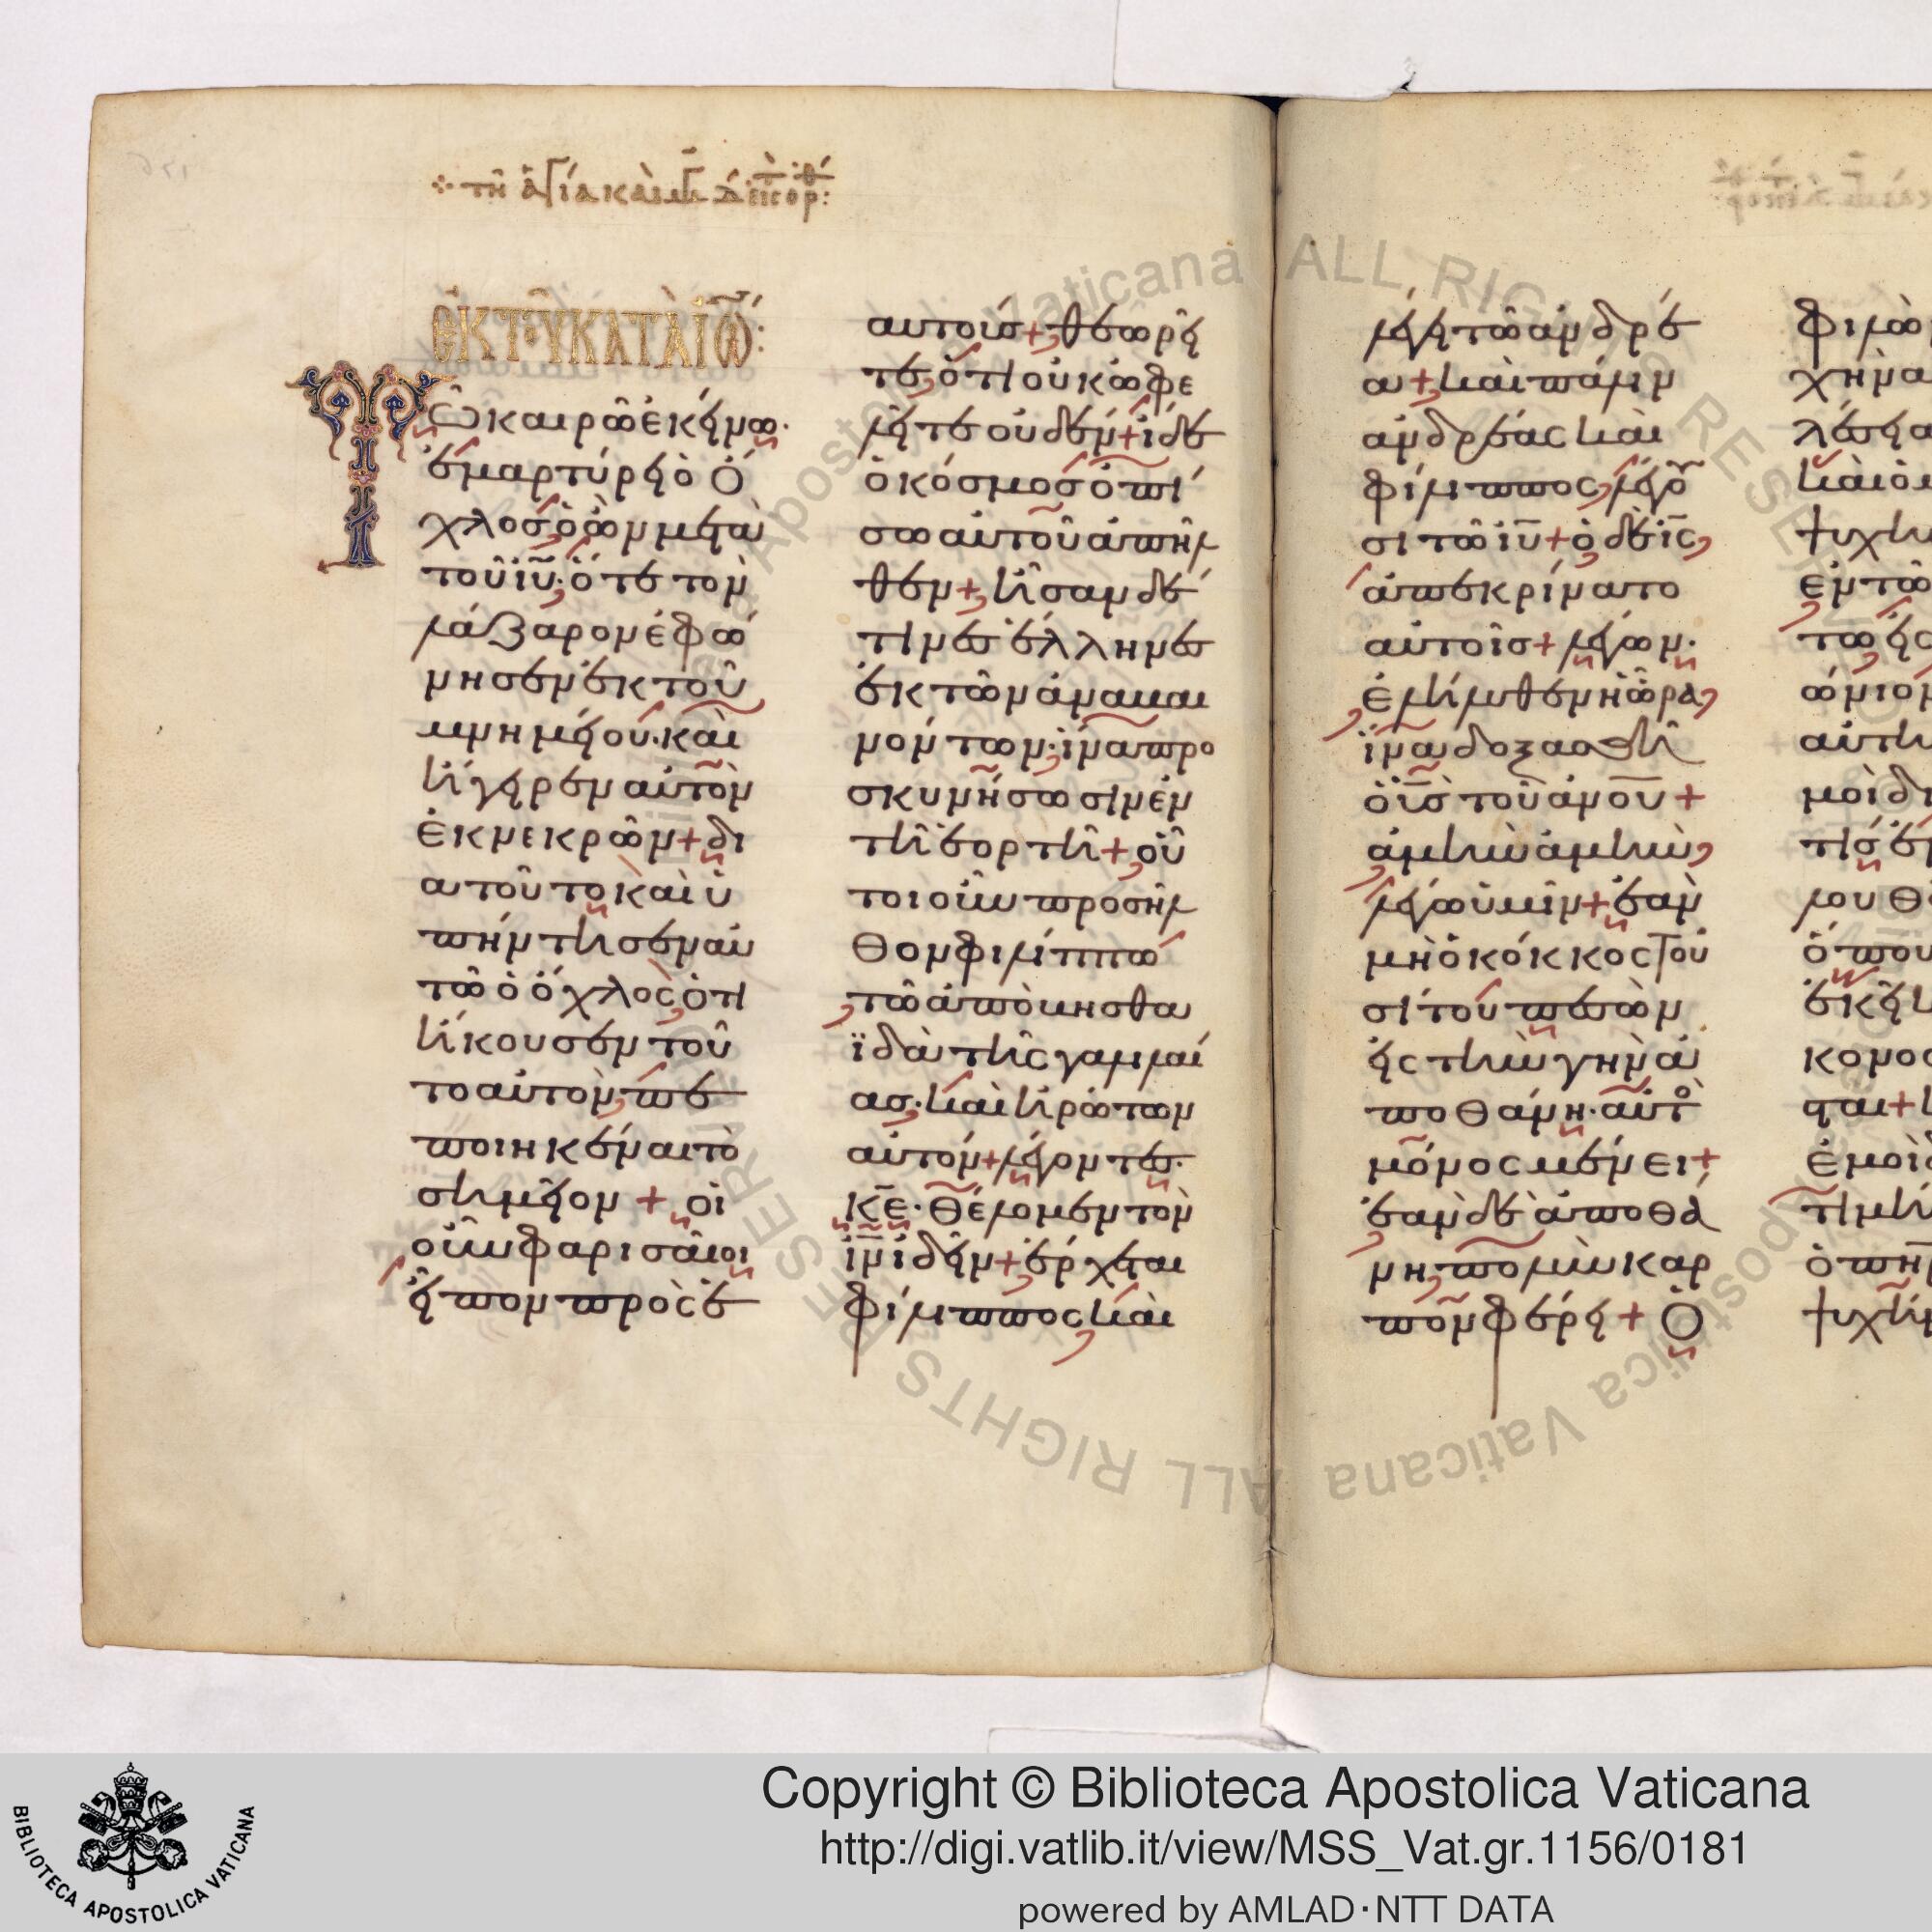 τῆ ἁγία καὶ
ἐκ τοῦ κατὰ ἰω:
Τῶ καιρῶ ἐκείνω·
ἐμαρτύρει ὁ ὄ
χλος ὁ ὢν μετ αὐ
τοῦ ἰῡ· ὅτε τὸν
λάζαρον ἐφώ
νησεν ἐκ τοῦ
μνημείου· καὶ
ἤγειρεν αὐτὸν
ἐκ νεκρῶν + δι
α τοῦτο καὶ ὑ
πήντησεν αὐ
τῶ ὁ ὄχλος, ὅτι
ἤκουσεν τοῦ
το αὐτὸν, πε
ποιηκέναι τὸ
σημεῖον + οἱ
οὖν φαρισαῖοι
εἶπον πρὸς ἑ
αυτούς + θεωρεῖ
τε, ὅτι οὐκ ὠφε
λεῖτε οὐδέν + ἴδε
ὁ κόσμος ὀπί
σω αὐτοῦ ἀπῆλ
θεν + ἦσαν δέ
τινες ἕλληνες
ἐκ τῶν ἀναβαι
νόντων· ἵνα προ
σκυνήσωσιν ἐν
τῆ ἑορτῆ + οὗ
τοι οὖν προσῆλ
θον φιλίππω
τῶ ἀπὸ βησθα
ϊδὰ τῆς γαλιλαί
ας· καὶ ἠρώτων
αὐτόν + λέγοντες·
κ̅ε̅· θέλομεν τὸν
ι̅ν̅ ἰδεῖν + ἔρχεται
φίλιππος, καὶ
λέγει τῶ ἀνδρέ
α + καὶ πάλιν
ανδρέας καὶ
φίλιππος, λέγου
σι τῶ ι̅υ̅ + ὁ δὲ ι̅ς̅,
ἀπεκρίνατο
αὐτοῖς + λέγων·
ἐλήλυθεν ἡ ὥρα,
ἵνα δοξασθῆ
ὁ υ̅ς̅ τοῦ α̅ν̅ο̅υ̅ +
ἀμὴν ἀμὴν,
λέγω ὑμῖν + ἐὰν
μὴ ὁ κόκκος τοῦ
σίτου πεσὼν
εἰς τὴν γῆν ἀ
ποθάνη· αὐτὸς
μόνος μένει +
ἐὰν δὲ ἀποθά
νη, πολὺν καρ
πὸν φέρει + Ὁ
φιλῶ
χὴν α
λέσει α
καὶ ὁ μ
ψυχὴ
ἐν τῶ
τω, εἰς
ώνιον
αὐτὴ
μοὶ δι
τὶς ἐμ
λου θ
ὅπου
ἐκεῖ
κονος
σται +
ἐμοὶ
τιμή
ὁ π̅η̅ρ̅
ψυχή
Copyright © Biblioteca Apostolica Vaticana
http://digi.vatlib.it/view/MSS_Vat.gr.1156/0181
powered by AMLAD·NTT DATA
BIBLIOTECA APOSTOLICA VATICANA